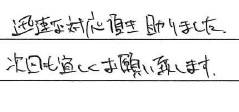 迅速な対応頂き助りました。
次回も宜しくお願い致します。